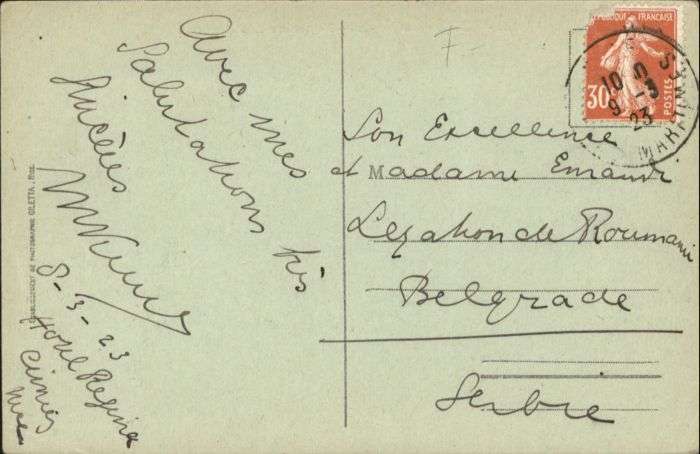 Avec mes
Salutations très
Sincères
8-3-23
Hotel Regina
Cimiez
Nice
ETABLISSEMENT DE PHOTOGRAPHIE GILETTA, Nice
F-
REPUBLIQUE FRANÇAISE
30c
POSTES
10
9-3
23
MARITIMES
Son Excellence
et Madame Emandi
Legation de Roumanie
Belgrade
Serbie